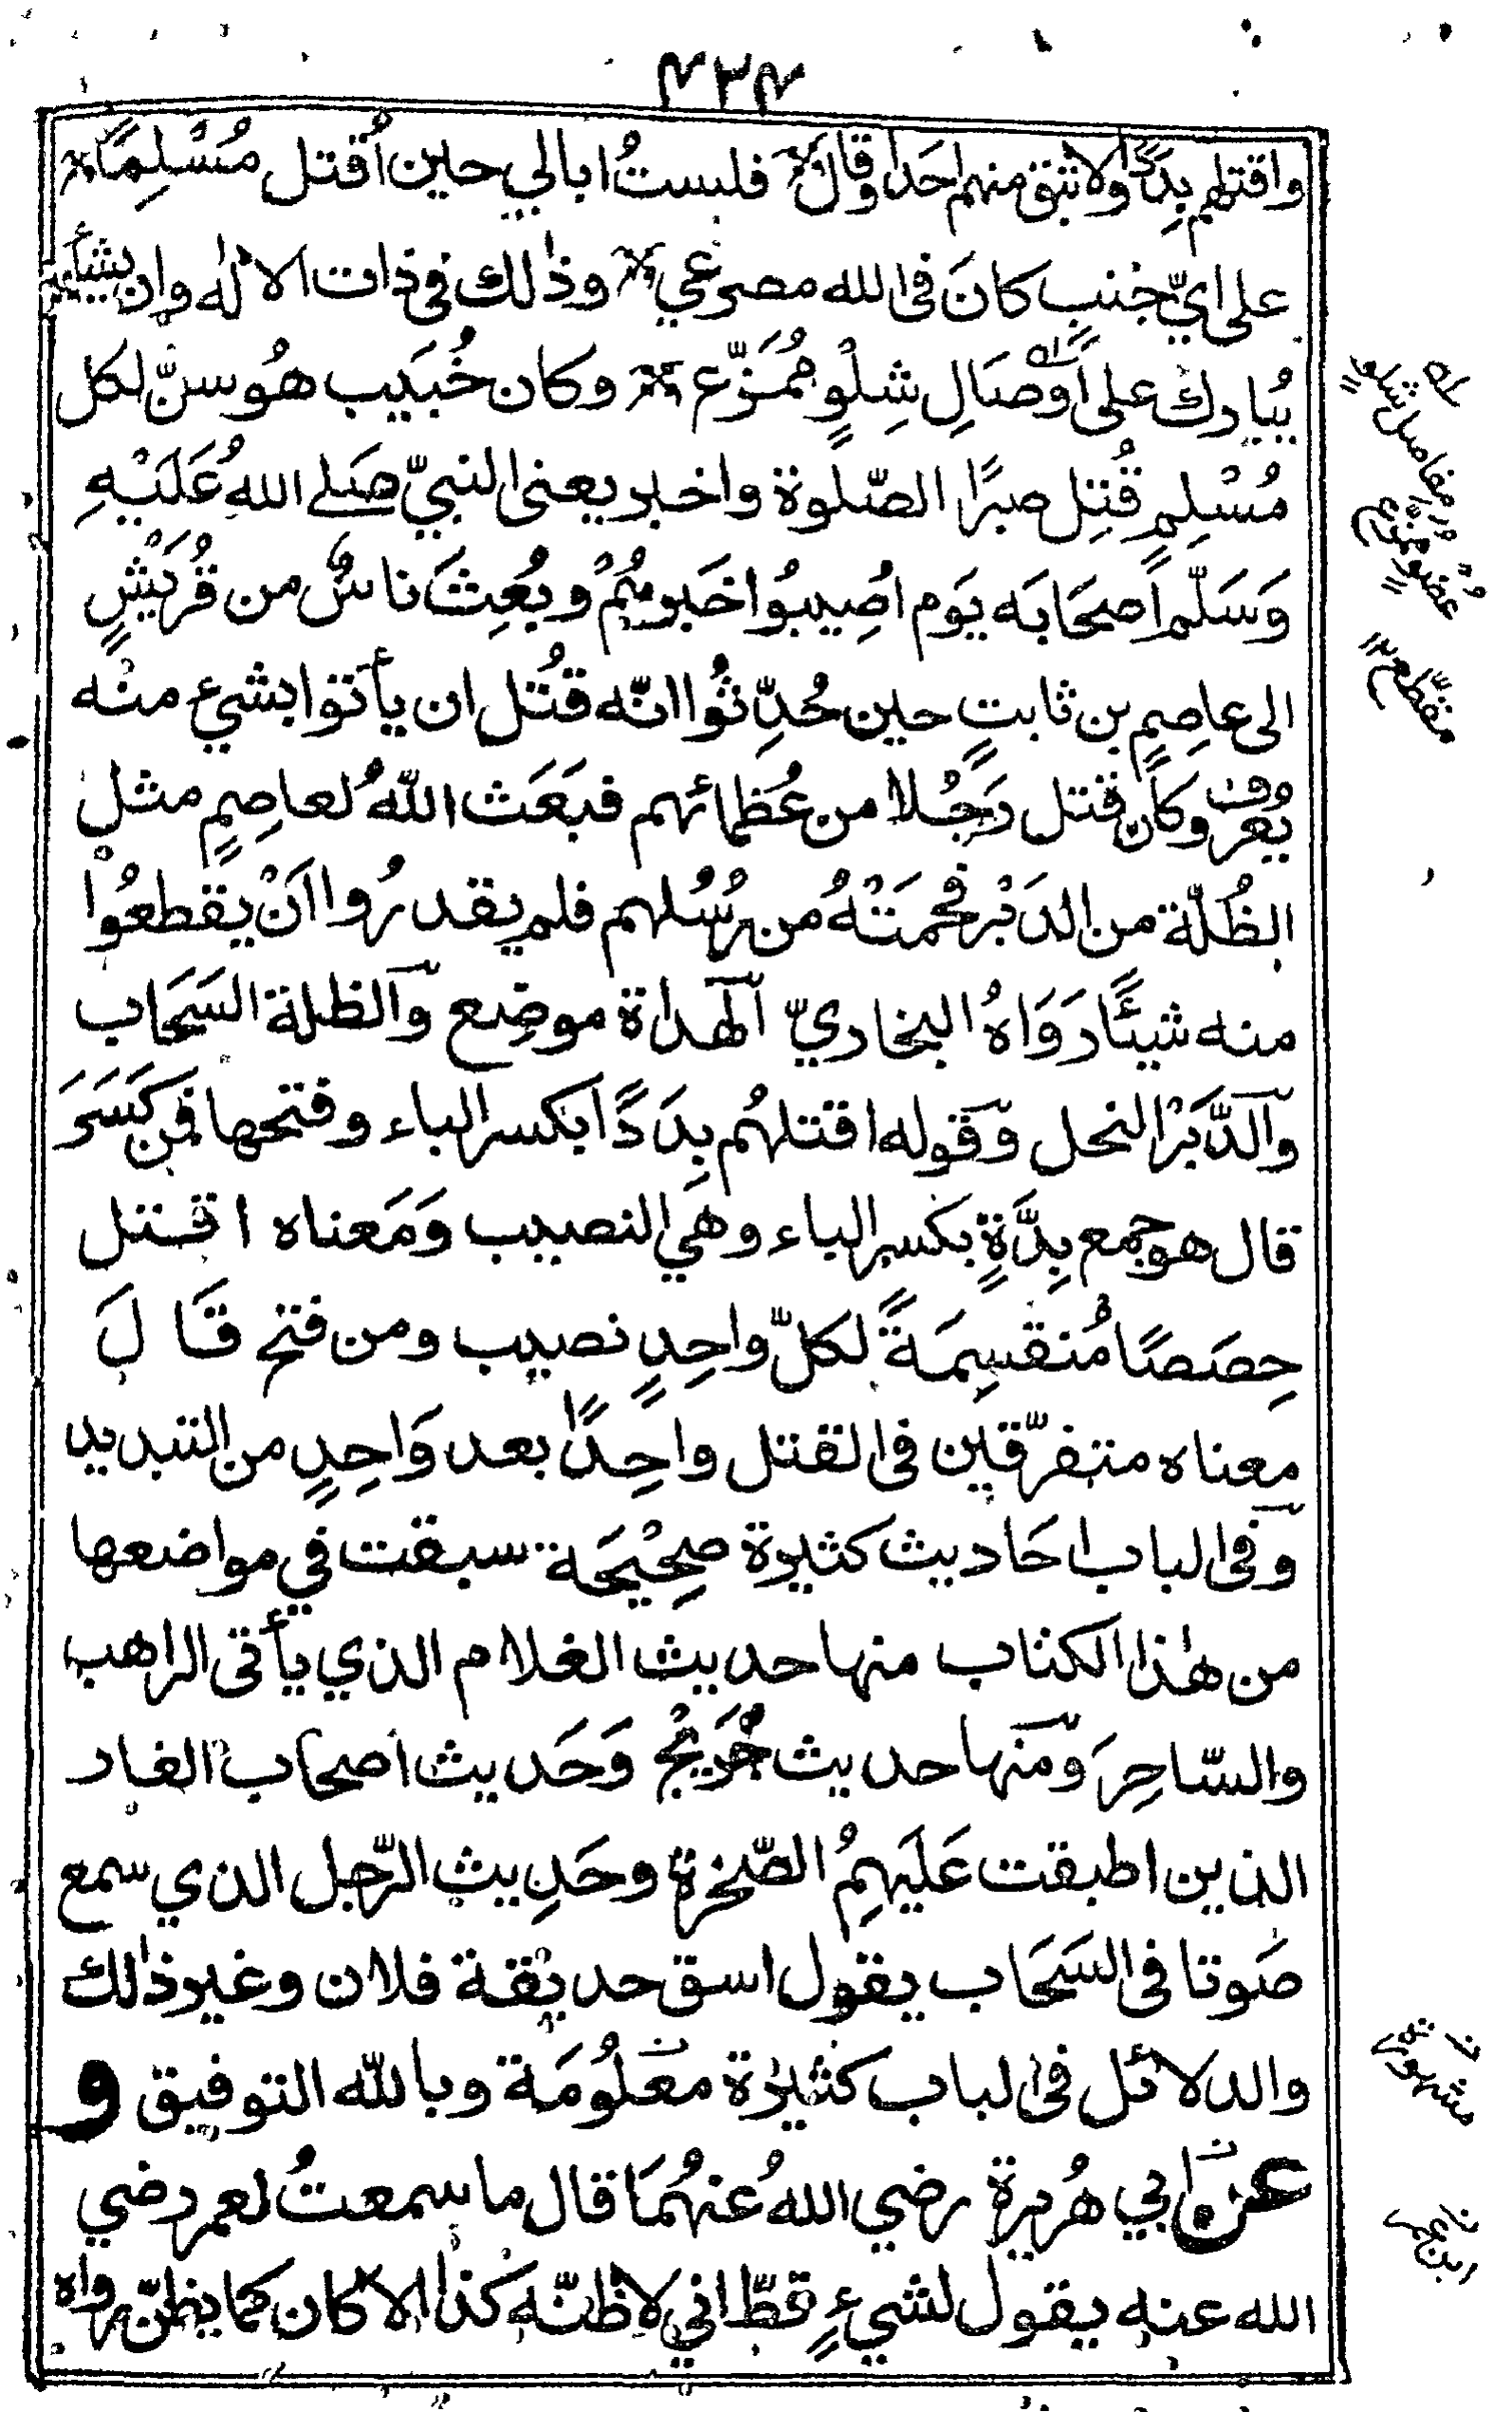 ٤٣٤
واقتلهم بِدَدًا ولا تبق منهم احَدا وقال فلستُ ابالي حين اُقتل مُسْلِمًا
على ايّ جَنبٍ كانَ فى الله مصرعي وذٰلك فى ذات الالٰه وان يشأ
يُبارك على اَوصَالِ شِلْوٍ مُمَزّع وكان خُبَيب هُو سنّ لكل
مُسْلِمٍ قُتِل صبرًا الصّلوة واخبر يعنى النبيّ صَلے اللهُ عَلَيْهِ
وَسَلّم اَصحَابَه يَوم اُصِيبُوا خَبرهُمْ وبُعِثَ ناسٌ من قُرَيْشٍ
الى عاصِمٍ بن ثابتٍ حين حُدِّثُوا انّه قُتُل ان يأتوا بشيء منْه
يُعرف وكانَ قتل رَجُلا من عُظمائهم فبَعَث اللّٰهُ لعاصِمٍ مثل
الظُلّة من الدَبْر فحَمَتْهُ من رُسُلهم فلم يقدرُوا اَنْ يقطعُوْا
منه شيئًا رَوَاهُ البخاريّ اَلهداة موضِع وَالظلة السَحَاب
وَالدَّبْر النحل وَقوله اقتلهُم بِدَدًا بكسر الباء وفتحها فمن كَسَرَ
قال هو جمع بِدَّةٍ بكسر الباء وهي النصيب وَمَعناه اقتل
حِصَصًا مُنقسِمَةً لكلّ واحِدٍ نصيب ومن فتح قَالَ
معناه متفرّقين فى القتل واحِدًا بعد وَاحِدٍ من التبديد
وَفى الباب احَاديث كثيرة صحِيْحَة سبقت في مواضعها
من هٰذا الكتاب منها حديث الغلام الذي يأتى الراهب
والسّاحِرَ وَمنها حديث جُرَيْج وَحَديث اصحاب الغار
الذين اطبقت عَلَيهِمُ الصّخرة وحَدِيث الرّجل الذي سمع
صَوتا فى السَحَاب يقول اسق حديقة فلان وغير ذٰلك
والدلائل فى الباب كثيرة معْلُومَة وبالله التوفيق و
عن ابي هُريرة رضي اللهُ عنهُمَا قال ما سمعتُ لعمر رضي
الله عنه يقول لشيءٍ قطّ اني لاظنّه كذا الا كان كما يظنّ رواه
اے مفاصل شلوٍ
عُضْوٌ ممزع
مقطّعٍ
مشهورة
ابن عمر